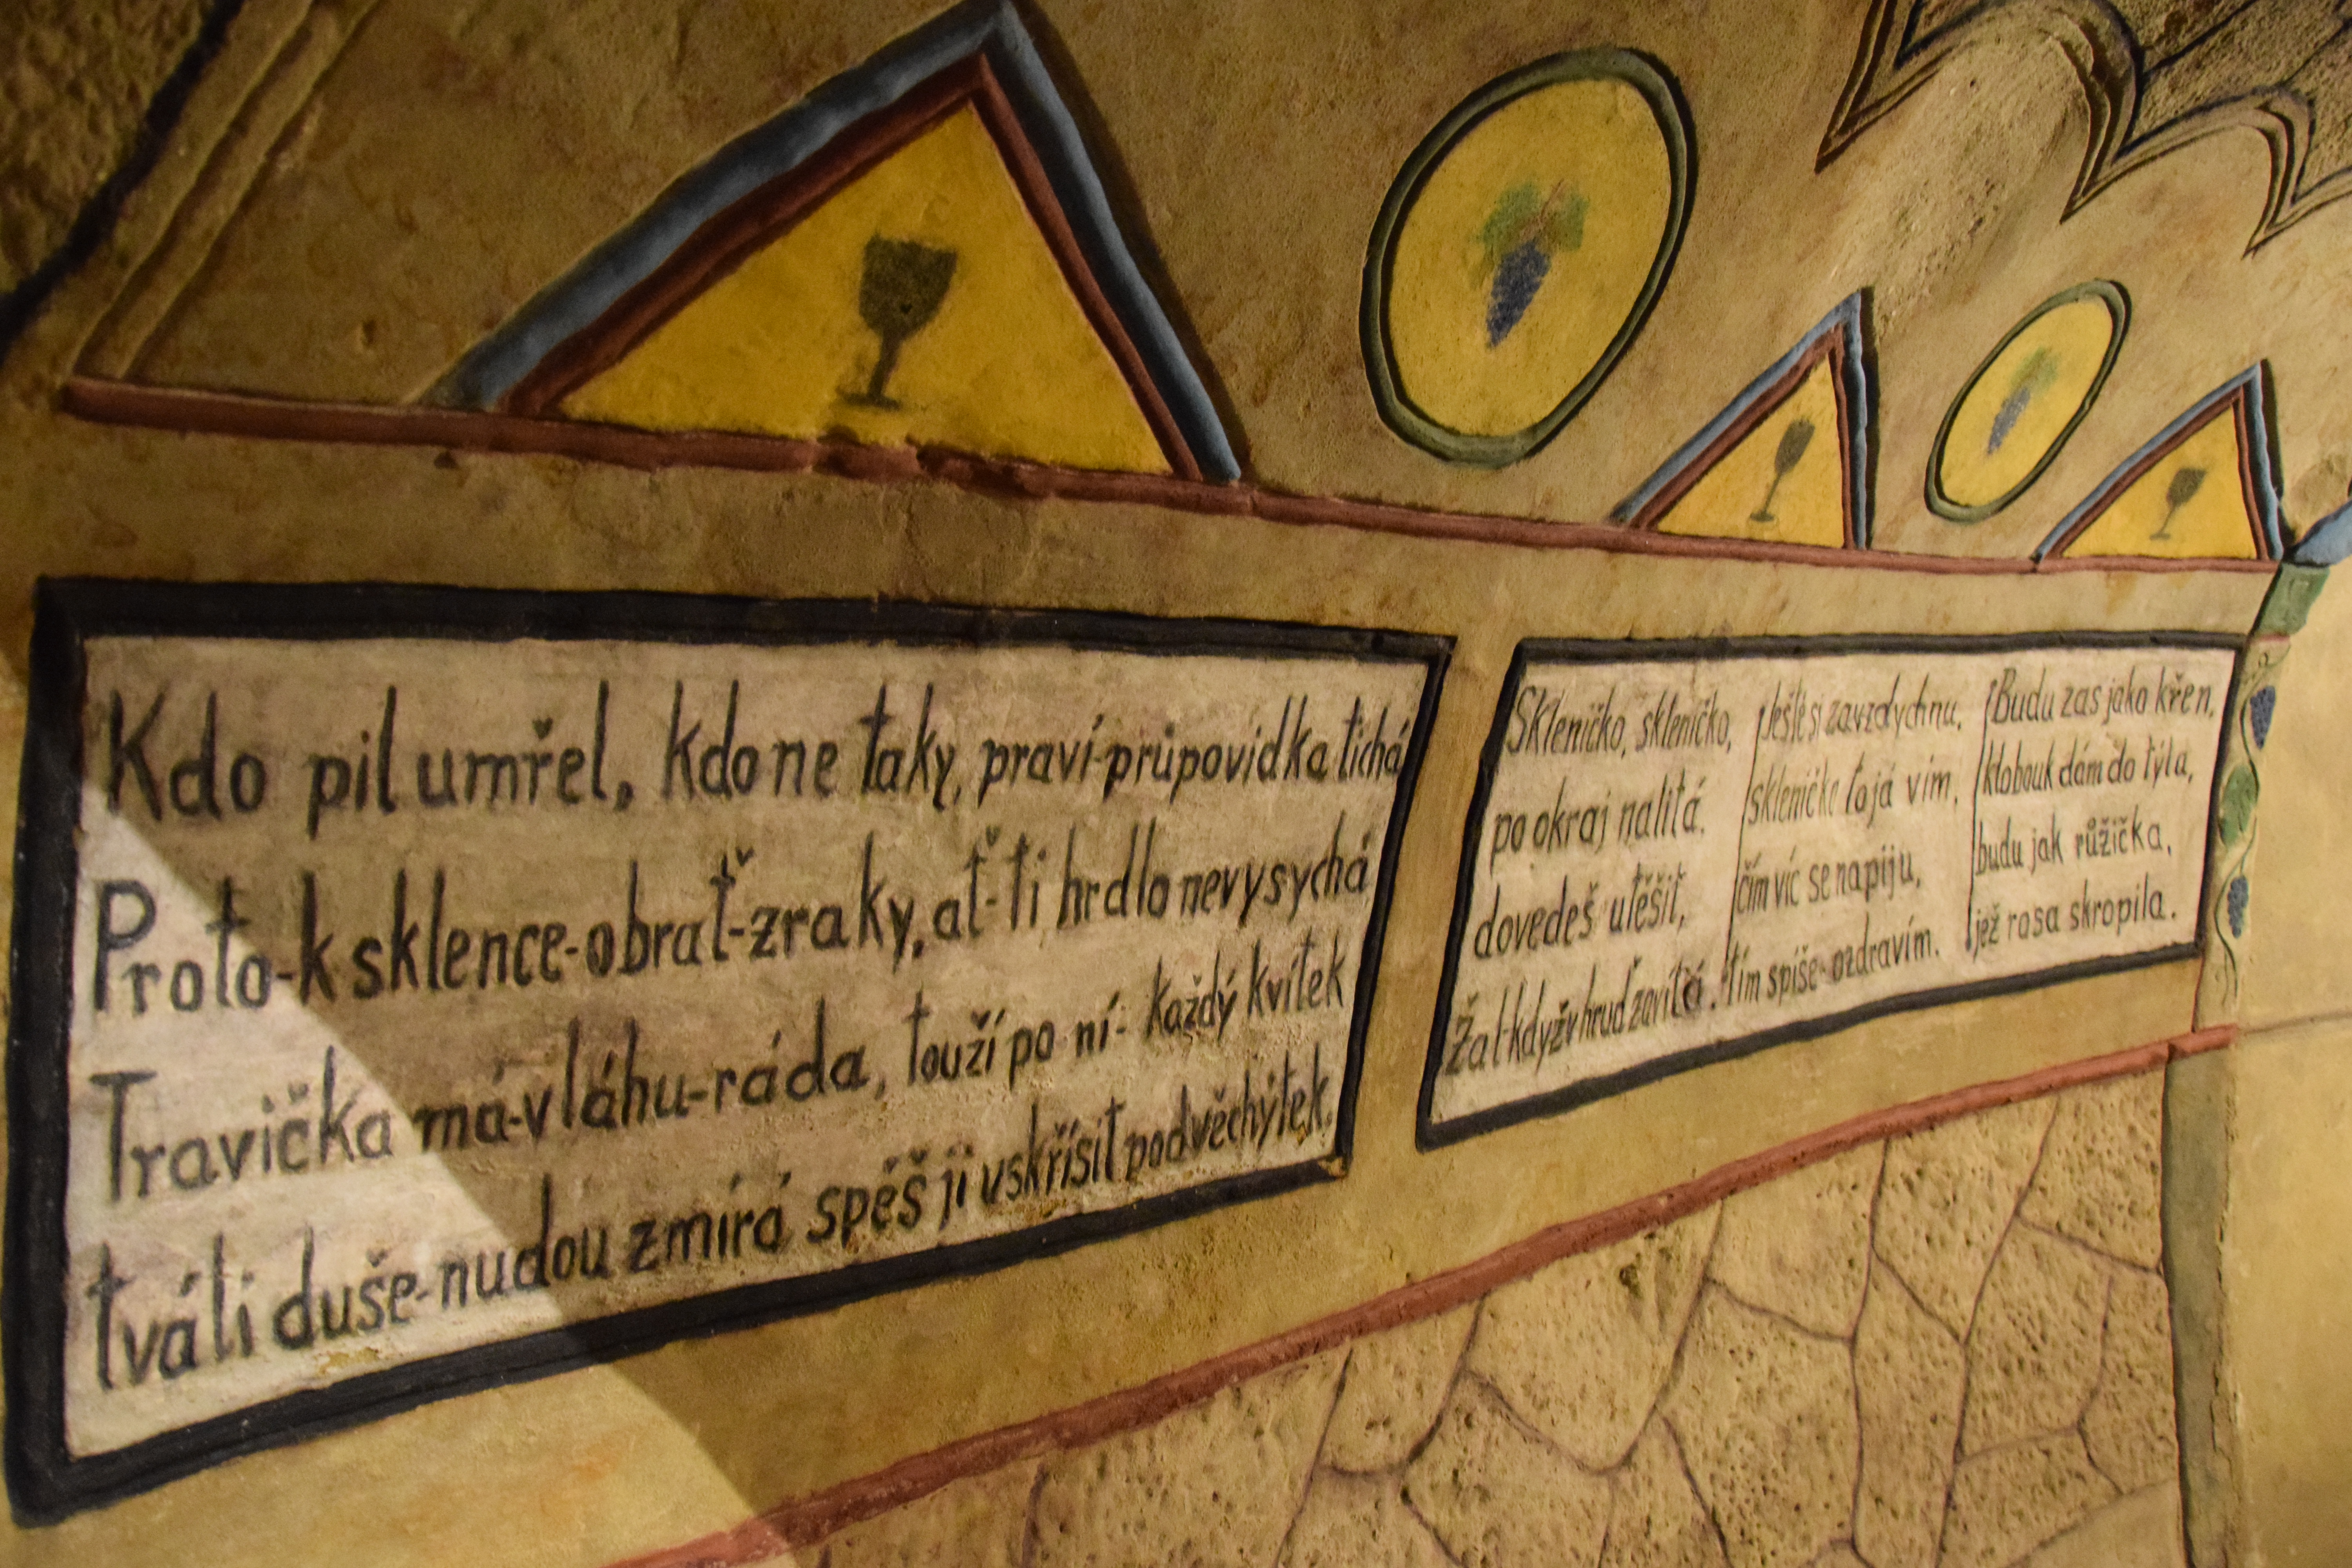 Kdo pil umřel, kdo ne taky, praví-průpovídka tichá
Proto-k sklence-obrať-zraky, ať-ti hrdlo nevysychá
Travička má-vláhu-ráda, touží po ní- každý kvítek
tváli duše-nudou zmírá spěš ji vskřísit podvěchýtek.
Skleničko, skleničko,
po okraj nalitá,
dovedeš utěšit,
Žal-když v hruď zavítá.
Ještě si zavzdychnu,
skleničke to já vím,
čím víc se napiju,
tím spíše-ozdravím.
Budu zas jako křen,
klobouk dám do týla,
budu jak růžička,
jež rosa skropila.